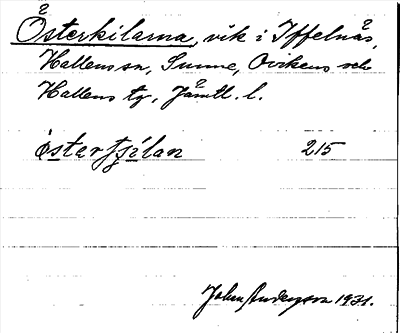 Österkilarna, vik i Yffelnäs,
Hallens sn, Sunne, Ovikens och
Hallens tg. Jämtl. l.
östertjilan 215
Johan Andersson 1931.